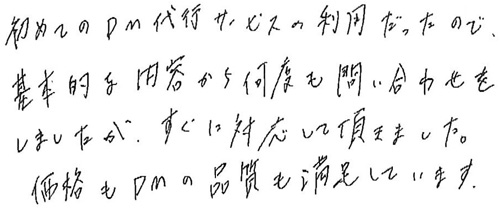 初めてのDM代行サービスの利用だったので、
基本的な内容から何度も問い合わせを
しましたが、すぐに対応して頂きました。
価格もDMの品質も満足しています。